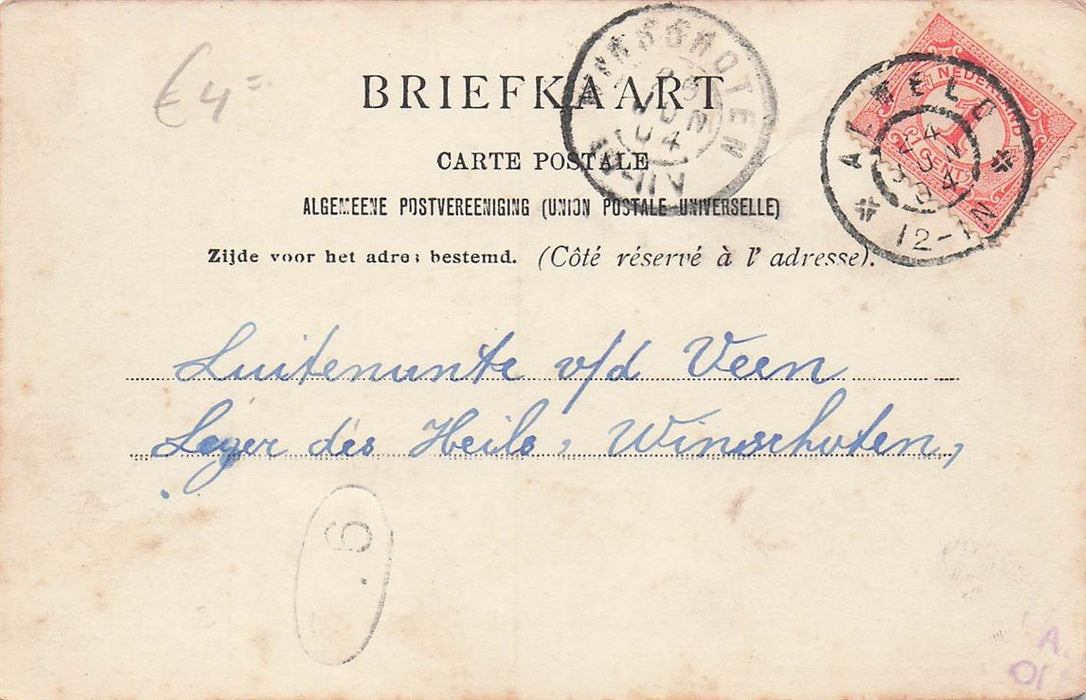 € 4=
BRIEFKAART
CARTE POSTALE
ALGEMEENE POSTVEREENIGING (UNION POSTALE UNIVERSELLE)
Zijde voor het adres bestemd. (Côté réservé à l'adresse).
WINSCHOTEN
JUN
04
ALMELO
4
12-1N
NEDERLAND
1
CENT
Luitenante v/d Veen
Leger des Heils, Winschoten,
6
A.